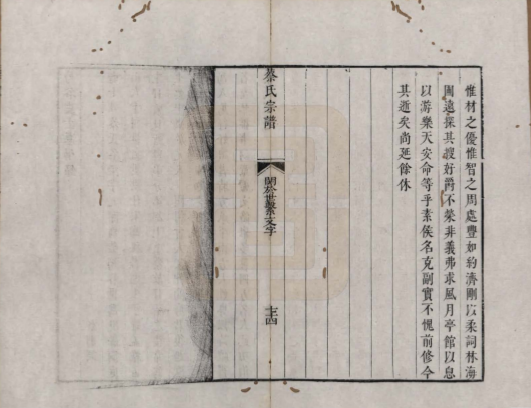 惟材之優惟智之周處豐如約濟剛以柔詞林海
圃遠探其搜好爵不榮非義弗求風月亭館以息
以游樂天安命等乎素侯名克副實不愧前修今
其逝矣尚延餘休
蔡氏宗譜
關於世繫文字